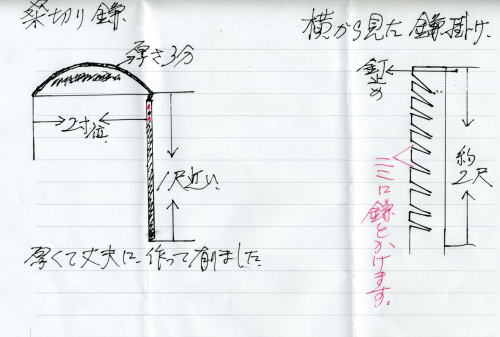 桑切り鎌
厚さ3分
2寸位
1尺近い
厚くて丈夫に作って有りました
横から見た鎌掛け
釘止め
約2尺
ここに鎌をかけます。